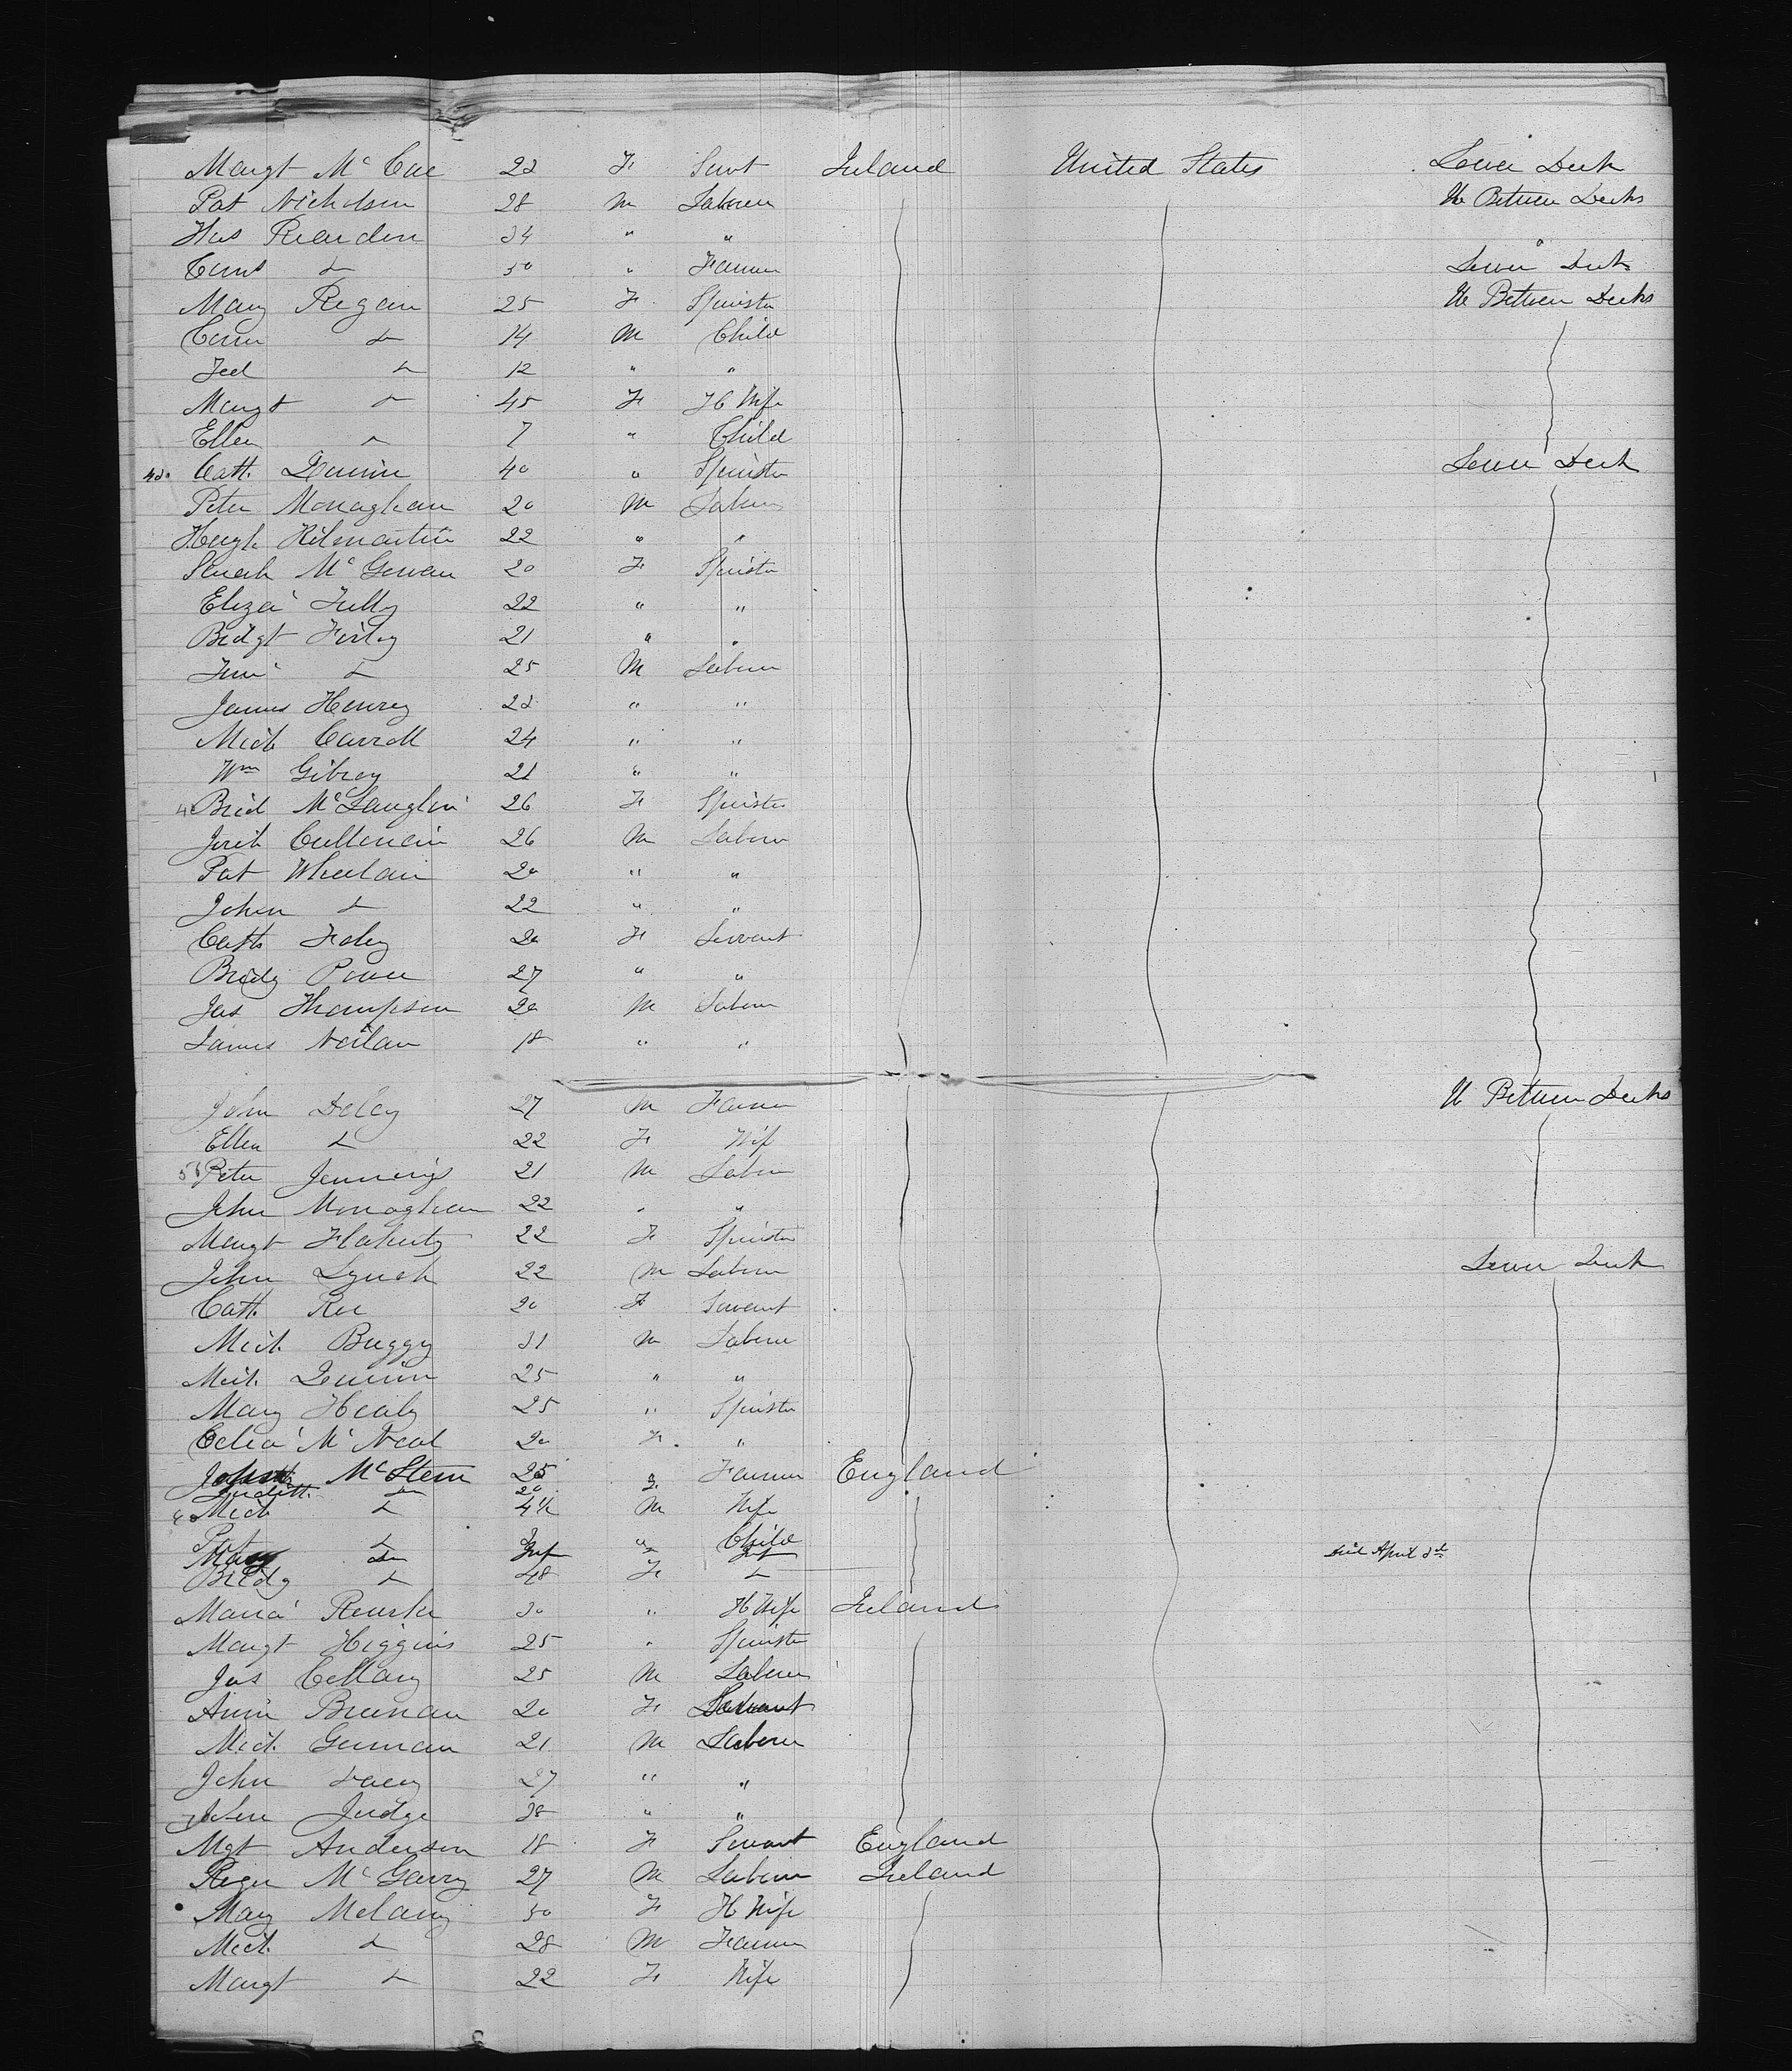 Margt McCue 22 F Servt Ireland United States Lower Deck
Pat Nicholson 28 M Laborer U Between Decks
Reardon 34 " " "
50 " Farmer Lower Deck
Mary Regan 25 F Spinster U Between Decks
14 M Child
12 " "
Margt 45 F H Wife
Ellen 7 " Child
Cath 40 " Spinster Lower Deck
Peter Monaghan 20 M Laborer
Hugh Kilmartin 22 " "
Sarah McGowan 20 F Spinster
Eliza Tully 22 " "
Bridgt 21 " "
25 M Labour
James Henry 22 " "
Mich Carroll 24 " "
Wm Gilroy 21 " "
Brid McLauglin 26 F Spinster
Cullenain 26 M Labour
Pat Wheelan 20 " "
John 22 " "
Cath Foley 20 F Servant
Bridg Power 27 " "
Jas Thompson 20 M Labour
James Neilan 18 " "
John Daley 27 M Farmer U Between Decks
Ellen 22 F Wife
Peter Jennings 21 M Labour
John Monaghan 22 " "
Margt Flaherty 22 F Spinster
John Lynch 22 M Labour Lower Deck
Cath 20 F Servant
Mich Buggy 31 M Labour
Mich 25 " "
Mary Healy 25 " Spinster
Celia McNeal 20 F "
John McStem 25 " Farmer England
Judith 20 F
Mich 4 M Wife
Pat " Child
Mary Inf Inf Died April 3d
Bridg 48 F
Maria 30 " H Wife Ireland
Margt Higgins 25 " Spinster
Jas 25 M Labour
Annie Brenan 20 F Servant
Mich Gurman 21 M Labour
John 27 " "
John Judge 38 " "
Mgt Anderson 18 F Servant England
Roger McGarry 27 M Labour Ireland
Mary Melany 50 F H Wife
Mich 28 M Farmer
Margt 22 F Wife